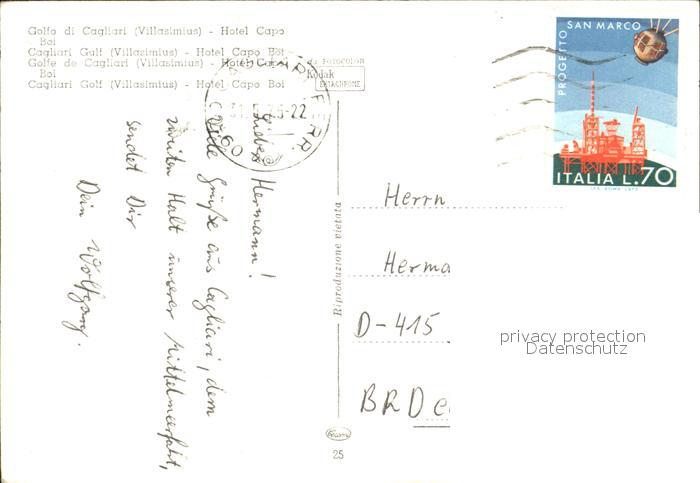 Golfo di Cagliari (Villasimius) - Hotel Capo
Boi
Cagliari Gulf (Villasimius) - Hotel Capo Boi
Golfe de Cagliari (Villasimius) - Hotel Capo
Boi
Cagliari Golf (Villasimius) - Hotel Capo Boi
da FOTOCOLOR
Kodak
EKTACHROME
PROGETTO
SAN MARCO
ITALIA L.70
Lieber Hermann!
Viele Grüße aus Cagliari, dem
zweiten Halt unserer Mittelmeerfahrt,
sendet Dir
Dein Wolfgang.
Riproduzione vietata
Herrn
Herma
D-415
BRD
privacy protection
Datenschutz
25